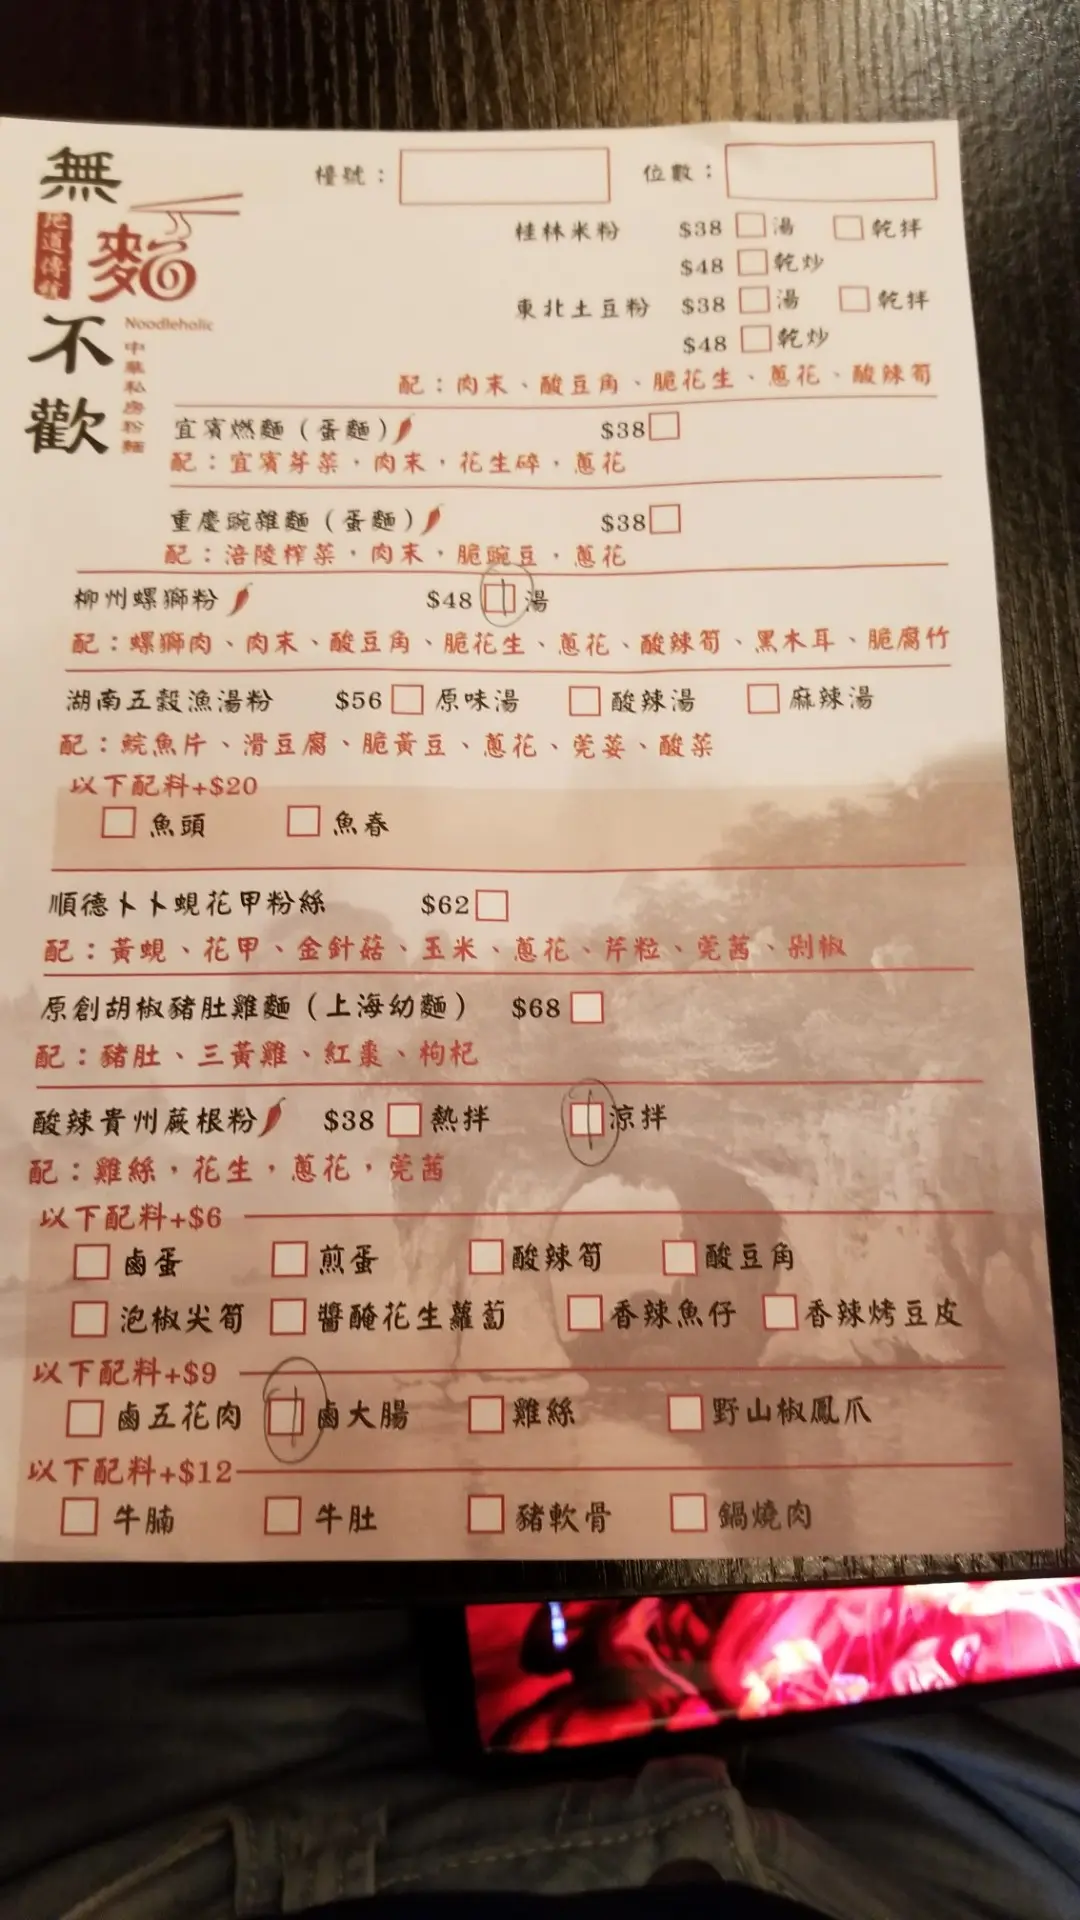 無
麵
不
歡
地道傳統
Noodleholic
中華私房粉麵
檯號：
位數：
桂林米粉 $38 湯 乾拌
$48 乾炒
東北土豆粉 $38 湯 乾拌
$48 乾炒
配：肉末、酸豆角、脆花生、蔥花、酸辣筍
宜賓燃麵（蛋麵） $38
配：宜賓芽菜，肉末，花生碎，蔥花
重慶豌雜麵（蛋麵） $38
配：涪陵榨菜，肉末，脆豌豆，蔥花
柳州螺獅粉 $48 湯
配：螺獅肉、肉末、酸豆角、脆花生、蔥花、酸辣筍、黑木耳、脆腐竹
湖南五穀漁湯粉 $56 原味湯 酸辣湯 麻辣湯
配：鯇魚片、滑豆腐、脆黃豆、蔥花、莞荽、酸菜
以下配料+$20
魚頭 魚春
順德卜卜蜆花甲粉絲 $62
配：黃蜆、花甲、金針菇、玉米、蔥花、芹粒、莞茜、剁椒
原創胡椒豬肚雞麵（上海幼麵） $68
配：豬肚、三黃雞、紅棗、枸杞
酸辣貴州蕨根粉 $38 熱拌 涼拌
配：雞絲，花生，蔥花，莞茜
以下配料+$6
鹵蛋 煎蛋 酸辣筍 酸豆角
泡椒尖筍 醬醃花生蘿蔔 香辣魚仔 香辣烤豆皮
以下配料+$9
鹵五花肉 鹵大腸 雞絲 野山椒鳳爪
以下配料+$12
牛腩 牛肚 豬軟骨 鍋燒肉